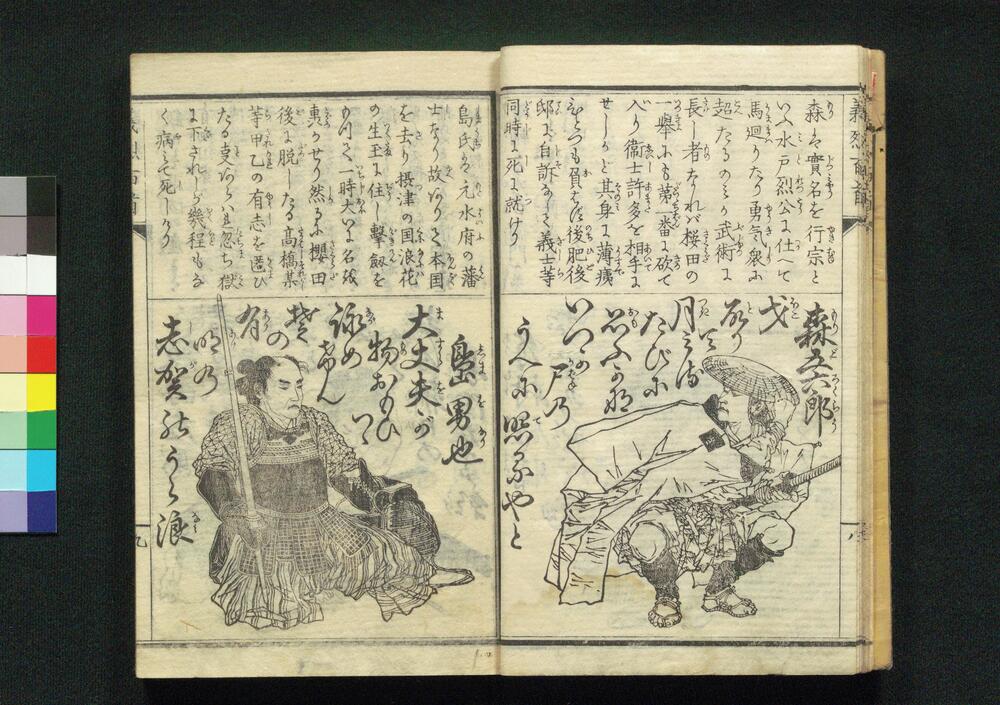 義烈百首
森は實名を行宗と
いふ水戸烈公に仕へて
馬廻りたり勇気衆に
超たるのミか武術に
長し者なれバ桜田の
一擧にも第一番に砍て
入り衛士許多を相手に
せしかど其身は薄痍
をだも負はず後肥後
邸に自訴なして義士等
同時に死に就けり
森五六郎
戈
取りて
月見る
たびに
思ふかな
いつか
尸の
うへに照るやと
八
島氏は元水府の藩
士なり故ありて本国
を去り摂津の国浪花
の生玉に住し擊劔を
もつて一時大いに名を
轟かせり然るに櫻田
後に脱したる高橋某
等甲乙の有志を匿ひ
たる事あらはれ忽ち獄
に下されしが幾程もな
く病て死しけり
島男也
大丈夫が
物おもひつゝ
詠め
けん
楚の
有
明の
志賀のうら浪
義烈百首
九